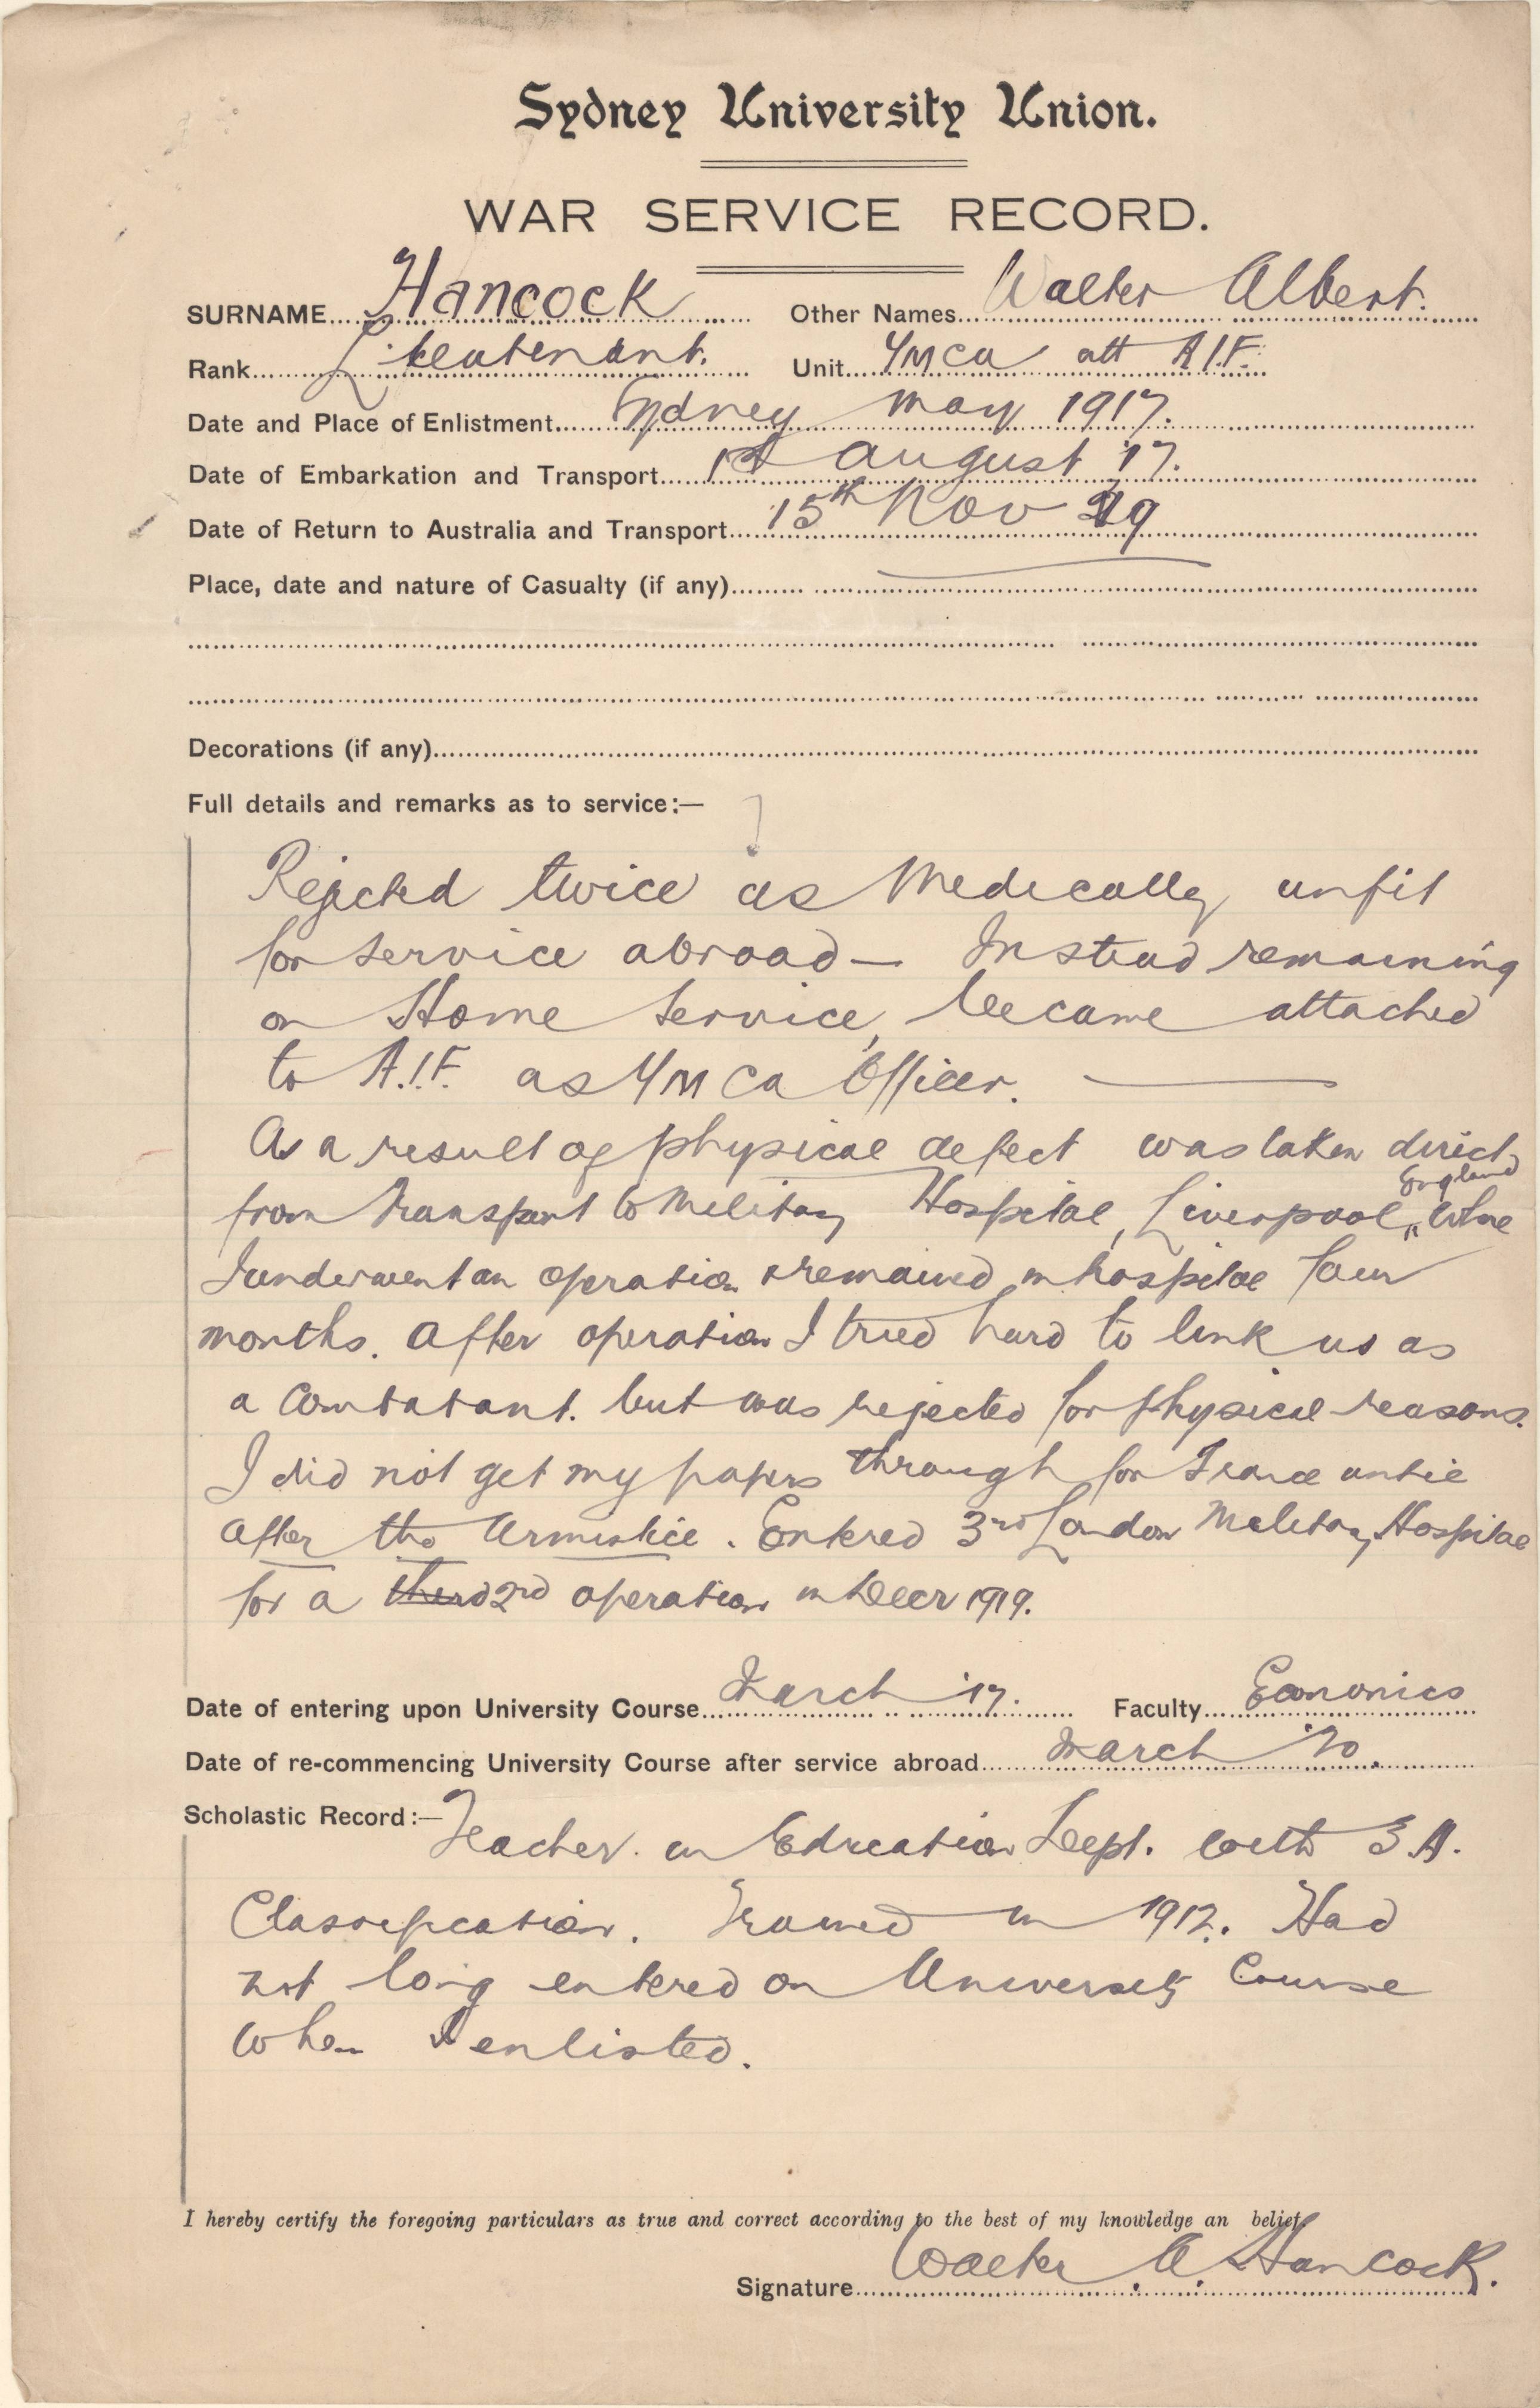 Sydney University Union.
WAR SERVICE RECORD.
SURNAME Hancock Other Names Walter Albert.
Rank Lieutenant. Unit YMCA att A.I.F.
Date and Place of Enlistment Sydney May 1917.
Date of Embarkation and Transport 1st August '17.
Date of Return to Australia and Transport 15th Nov 19
Place, date and nature of Casualty (if any)
Decorations (if any)
Full details and remarks as to service:—
Rejected twice as Medically unfit
for service abroad — Instead remaining
on Home Service, became attached
to A.I.F. as YMCA Officer. —
As a result of physical defect was taken direct
from transport to Military Hospital, Liverpool, England where
I underwent an operation & remained in hospital four
months. After operation I tried hard to link us as
a Combatant. but was rejected for physical reasons.
I did not get my papers through for France until
after the Armistice. Entered 3rd London Military Hospital
for a third 2nd operation in Decr 1919.
Date of entering upon University Course March '17. Faculty Economics
Date of re-commencing University Course after service abroad March '20.
Scholastic Record:— Teacher. in Education Dept. with 3A.
Classification. Trained in 1912. Had
not long entered on University Course
when I enlisted.
I hereby certify the foregoing particulars as true and correct according to the best of my knowledge an belief
Signature Walter A. Hancock.